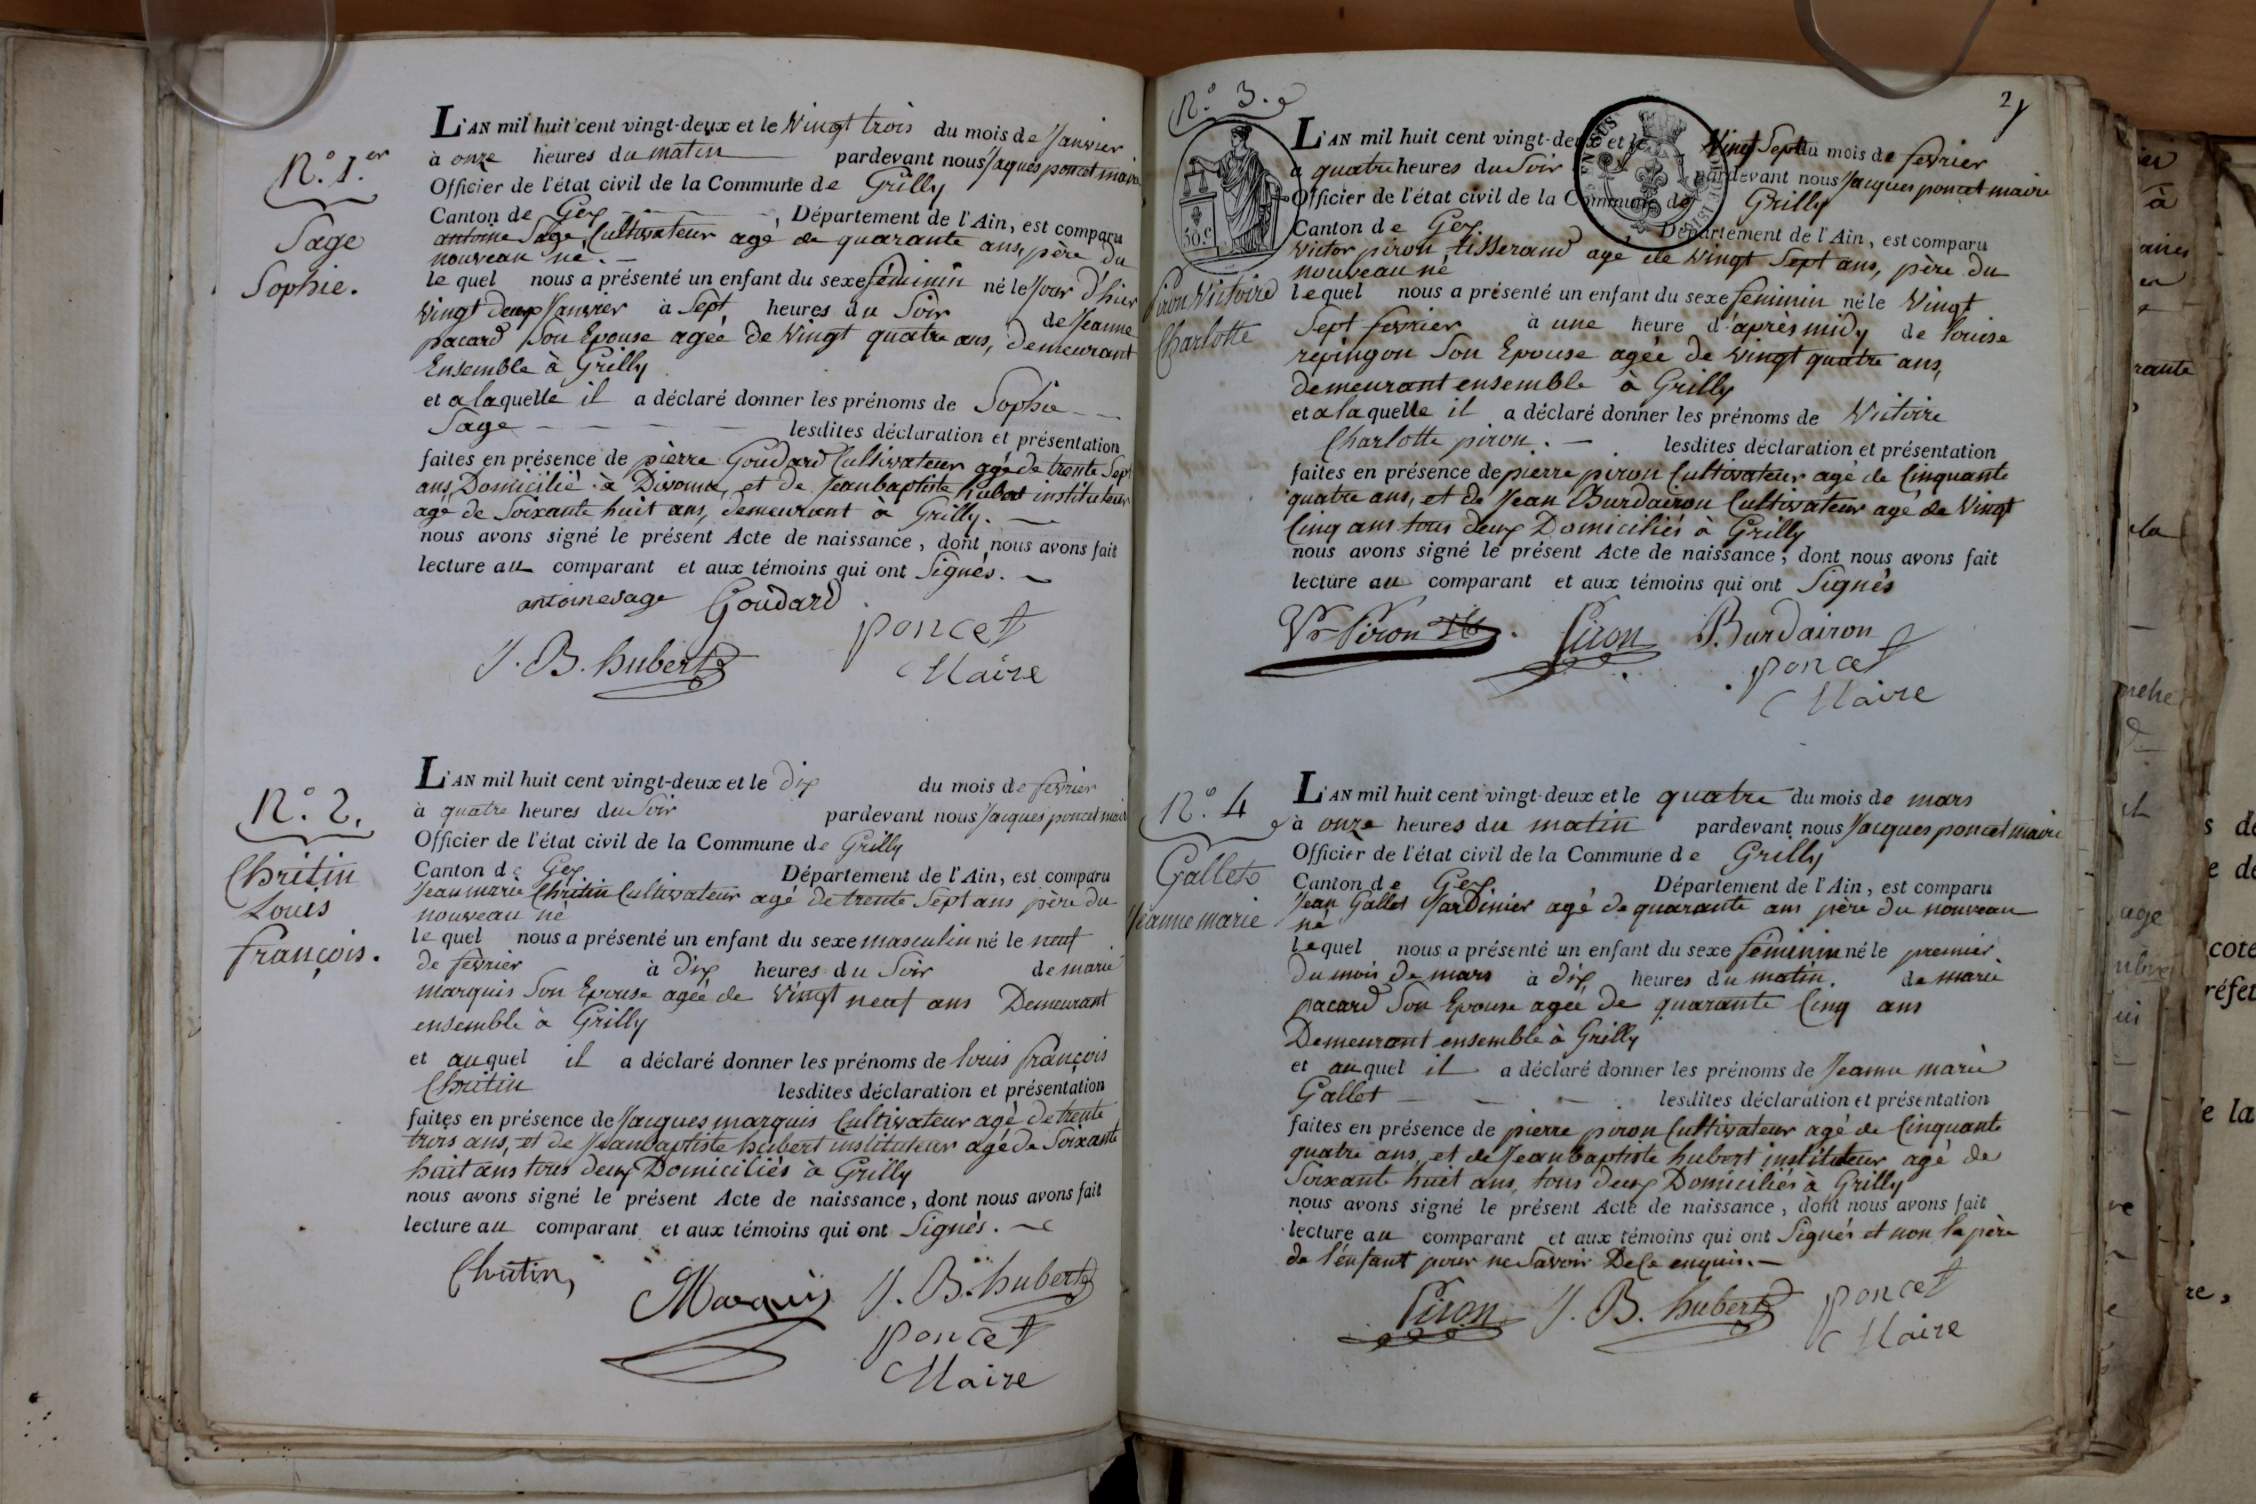 N.° 1.er
Sage
Sophie.
L'AN mil huit cent vingt-deux et le Vingt trois du mois de Janvier
à onze heures du matin pardevant nous Jaques poncet maire
Officier de l'état civil de la Commune de Grilly
Canton de Gex, Département de l'Ain, est comparu
antoine Sage, Cultivateur agé de quarante ans, père du
nouveau né. —
le quel nous a présenté un enfant du sexe féminin né le Jour d'hier
vingt deux Janvier à Sept heures du Soir de Jeanne
pacard Son Epouse agée de Vingt quatre ans, demeurant
Ensemble à Grilly
et a laquelle il a déclaré donner les prénoms de Sophie — —
Sage — — — — — lesdites déclaration et présentation
faites en présence de pierre Goudard Cultivateur agé de trente Sept
ans, Domicilié à Divonne, et de Jeanbaptiste hubert instituteur
agé de Soixante huit ans, demeurant à Grilly. —
nous avons signé le présent Acte de naissance, dont nous avons fait
lecture au comparant et aux témoins qui ont Signés. —
antoine sage Goudard
J. B. hubert poncet
Maire
N.° 2.
Chritin
Louis
françois.
L'AN mil huit cent vingt-deux et le dix du mois de février
à quatre heures du Soir pardevant nous Jacques poncet maire
Officier de l'état civil de la Commune de Grilly
Canton de Gex Département de l'Ain, est comparu
Jeanmarie Chritin Cultivateur agé de trente Sept ans père du
nouveau né
le quel nous a présenté un enfant du sexe masculin né le neuf
de février à dix heures du Soir de marie
marquis Son Epouse agée de Vingt neuf ans Demeurant
ensemble à Grilly
et auquel il a déclaré donner les prénoms de louis françois
Chritin lesdites déclaration et présentation
faites en présence de Jacques marquis Cultivateur agé de trente
trois ans, et de Jeanbaptiste hubert instituteur agé de Soixante
huit ans tous deux Domiciliés à Grilly
nous avons signé le présent Acte de naissance, dont nous avons fait
lecture au comparant et aux témoins qui ont Signés. —
Chritin, Marquis J. B. hubert
poncet
Maire
2
N.° 3.
50.c
Piron Victoire
Charlotte
L'AN mil huit cent vingt-deux et le Vingt Sept du mois de février
à quatre heures du Soir pardevant nous Jacques poncet maire
Officier de l'état civil de la Commune de Grilly
Canton de Gex. Département de l'Ain, est comparu
Victor piron, tisserand agé de Vingt Sept ans, père du
nouveau né
lequel nous a présenté un enfant du sexe féminin né le Vingt
Sept février à une heure d'après midy de louise
repingon Son Epouse agée de Vingt quatre ans,
demeurant ensemble à Grilly
et a laquelle il a déclaré donner les prénoms de Victoire
Charlotte piron. — lesdites déclaration et présentation
faites en présence de pierre piron Cultivateur agé de Cinquante
quatre ans, et de Jean Burdairon Cultivateur agé de Vingt
Cinq ans tous deux Domiciliés à Grilly
nous avons signé le présent Acte de naissance; dont nous avons fait
lecture au comparant et aux témoins qui ont Signés
Vr Piron Piron Burdairon
poncet
Maire
N.° 4
Gallet
Jeanne marie
L'AN mil huit cent vingt-deux et le quatre du mois de mars
à onze heures du matin pardevant nous Jacques poncet maire
Officier de l'état civil de la Commune de Grilly
Canton de Gex. Département de l'Ain, est comparu
Jean Gallet Jardinier agé de quarante ans père du nouveau
né
lequel nous a présenté un enfant du sexe féminin né le premier
du mois de mars à dix heures du matin. de marie
pacard Son Epouse agée de quarante Cinq ans
Demeurant ensemble à Grilly
et auquel il a déclaré donner les prénoms de Jeanne marie
Gallet — — — lesdites déclaration et présentation
faites en présence de pierre piron Cultivateur agé de Cinquante
quatre ans, et de Jeanbaptiste hubert instituteur agé de
Soixante huit ans, tous deux Domiciliés à Grilly
nous avons signé le présent Acte de naissance, dont nous avons fait
lecture au comparant et aux témoins qui ont Signés et non le père
de l'enfant pour ne Savoir De Ce enquis. —
Piron J. B. hubert poncet
Maire